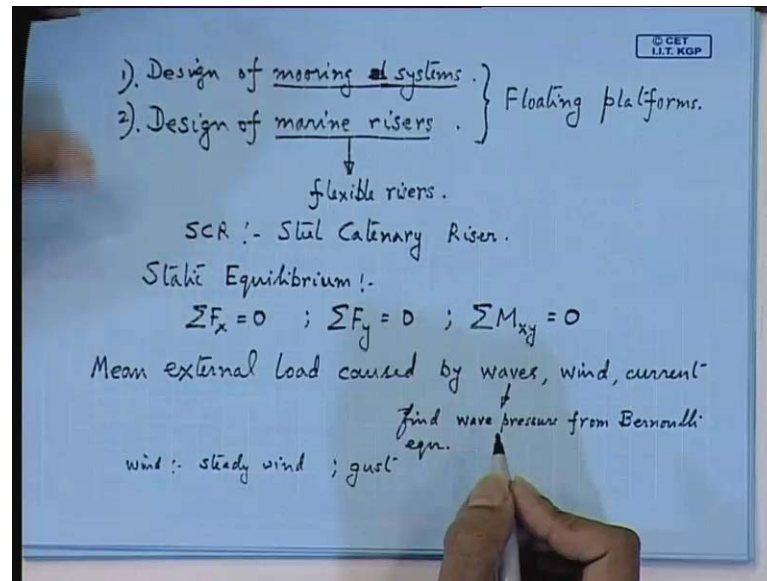 © CET
I.I.T. KGP
1). Design of mooring systems.
2). Design of marine risers.
} Floating platforms.
flexible risers.
SCR :- Steel Catenary Riser.
Static Equilibrium :-
ΣFx = 0 ; ΣFy = 0 ; ΣMxy = 0
Mean external Load caused by waves, wind, current
find wave pressure from Bernoulli
eqn.
wind :- steady wind ; gust